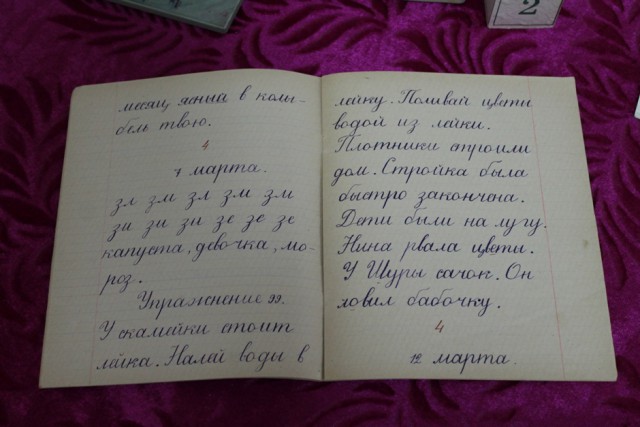 2
месяц ясный в колы-
бель твою.
4
7 марта.
зл зм зл зм зм
зи зи зи зе зе зе
капуста, девочка, мо-
роз.
Упражнение 99.
У скамейки стоит
лейка. Налей воды в
лейку. Поливай цветы
водой из лейки.
Плотники строили
дом. Стройка была
быстро закончена.
Дети были на лугу.
Нина рвала цветы.
У Шуры сачок. Он
ловил бабочку.
4
12 марта.